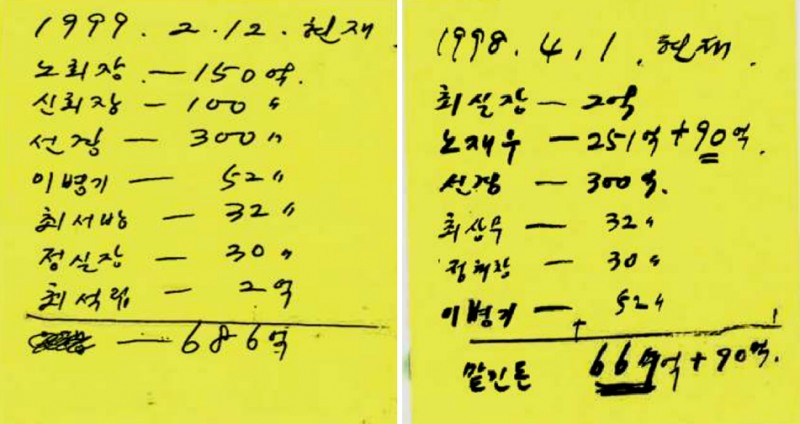 1999. 2. 12. 현재
노회장 — 150억.
신회장 — 100 〃
선경 — 300 〃
이병기 — 52 〃
최서방 — 32 〃
정실장 — 30 〃
최석립 — 2억
— 686억
1998. 4. 1. 현재.
최실장 — 2억
노재우 — 251억+90억.
선경 — 300억.
최상무 — 32 〃
— 30 〃
이병기 — 52 〃
맡긴돈 667억+90억.